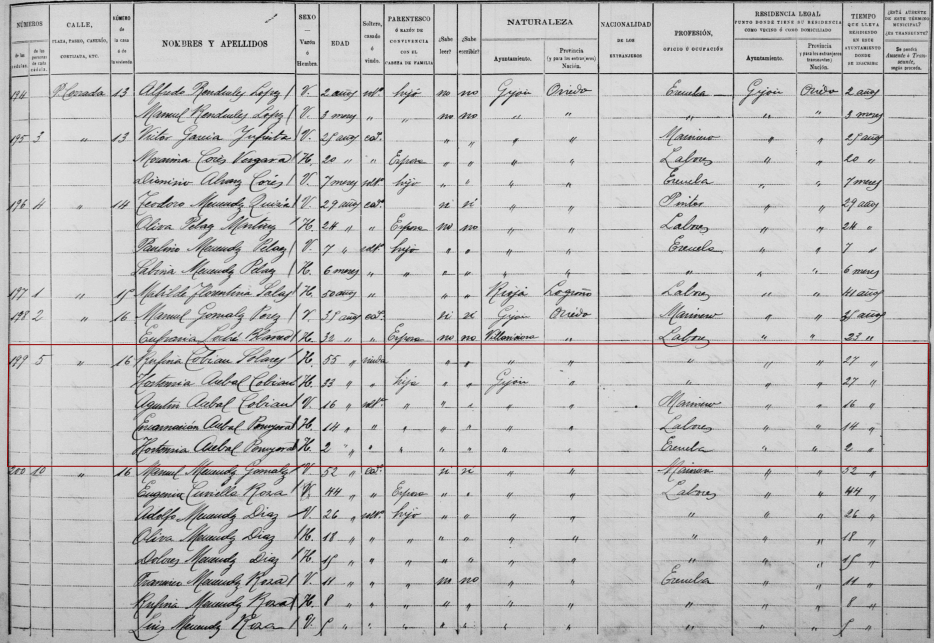 NÚMEROS
de las cédulas
de las personas de cada cédula.
CALLE, PLAZA, PASEO, CASERÍO, CORTIJADA, ETC.
NÚMERO de la casa ó de la vivienda
NOMBRES Y APELLIDOS
SEXO — Varón ó Hembra.
EDAD
Soltero, casado ó viudo.
PARENTESCO Ó RAZÓN DE CONVIVENCIA CON EL CABEZA DE FAMILIA
¿Sabe leer?
¿Sabe escribir?
NATURALEZA
Ayuntamiento.
Provincia (y para los extranjeros) Nación.
NACIONALIDAD DE LOS EXTRANJEROS
PROFESIÓN, OFICIO Ú OCUPACIÓN
RESIDENCIA LEGAL
PUNTO DONDE TIENE SU RESIDENCIA COMO VECINO Ó COMO DOMICILIADO
Ayuntamiento.
Provincia (y para los extranjeros transeuntes) Nación.
TIEMPO QUE LLEVA RESIDIENDO EN ESTE AYUNTAMIENTO DONDE SE INSCRIBE
¿ESTÁ AUSENTE DE ESTE TÉRMINO MUNICIPAL? ¿ES TRANSEUNTE?
Se pondrá Ausente ó Transeunte, según proceda.
194 13 Alfredo Rendueles Lopez V. 2 años solt. hijo no no Gijon Oviedo Escuela Gijon Oviedo 2 años
Manuel Rendueles Lopez V. 3 meses " " no no " " " " " 3 meses
195 3 " 13 Victor Garcia V. 25 años cas. " " " " Marinero " " 25 años
Vergara H. 20 " " Esposa " " " " Labores " " 20 "
Dionisio V. 7 meses solt. hijo " " " " Escuela " " 7 meses
196 4 " 14 Teodoro Menendez V. 29 años cas. si si " " Pintor " " 29 años
Oliva Pelaez Martinez H. 24 " " Esposa no no " " Labores " " 24 "
Paulino Menendez Pelaez V. 7 " solt. hijo " " " " Escuela " " 7 "
Sabina Menendez Pelaez H. 6 meses " " " " " " " " " 6 meses
197 1 " 15 Matilde Florentina H. 50 años " " " Rioja Logroño Labores " " 41 años
198 2 " 16 Manuel Gonzalez V. 35 años cas. si si Gijon Oviedo Marinero " " 35 años
H. 32 " " Esposa no no Villaviciosa " Labores " " 23 "
199 5 " 16 Rufina Cobian Solares H. 55 " viuda " " " " " " " 27 "
Hortensia Cobian H. 33 " " hija " " Gijon " " " " 27 "
Agustin Cobian V. 16 " solt. " " " " " Marinero " " 16 "
Encarnacion H. 14 " " " " " " " Labores " " 14 "
Hortensia H. 2 " " " " " " " Escuela " " 2 "
200 10 " 16 Manuel Menendez Gonzalez V. 52 " cas. si si " " Marinero " " 52 "
Eugenia Curiella Roza V. 44 " " Esposa " " " " Labores " " 44 "
Adolfo Menendez Diaz V. 26 " solt. hijo " " " " " " " 26 "
Oliva Menendez Diaz H. 18 " " " " " " " " " " 18 "
Dolores Menendez Diaz H. 15 " " " " " " " " " 15 "
Francisco Menendez Roza V. 11 " " " no no " " Escuela " " 11 "
Rufina Menendez Roza H. 8 " " " " " " " " " " 8 "
Luis Menendez Roza V. 5 " " " " " " " " " " 5 "